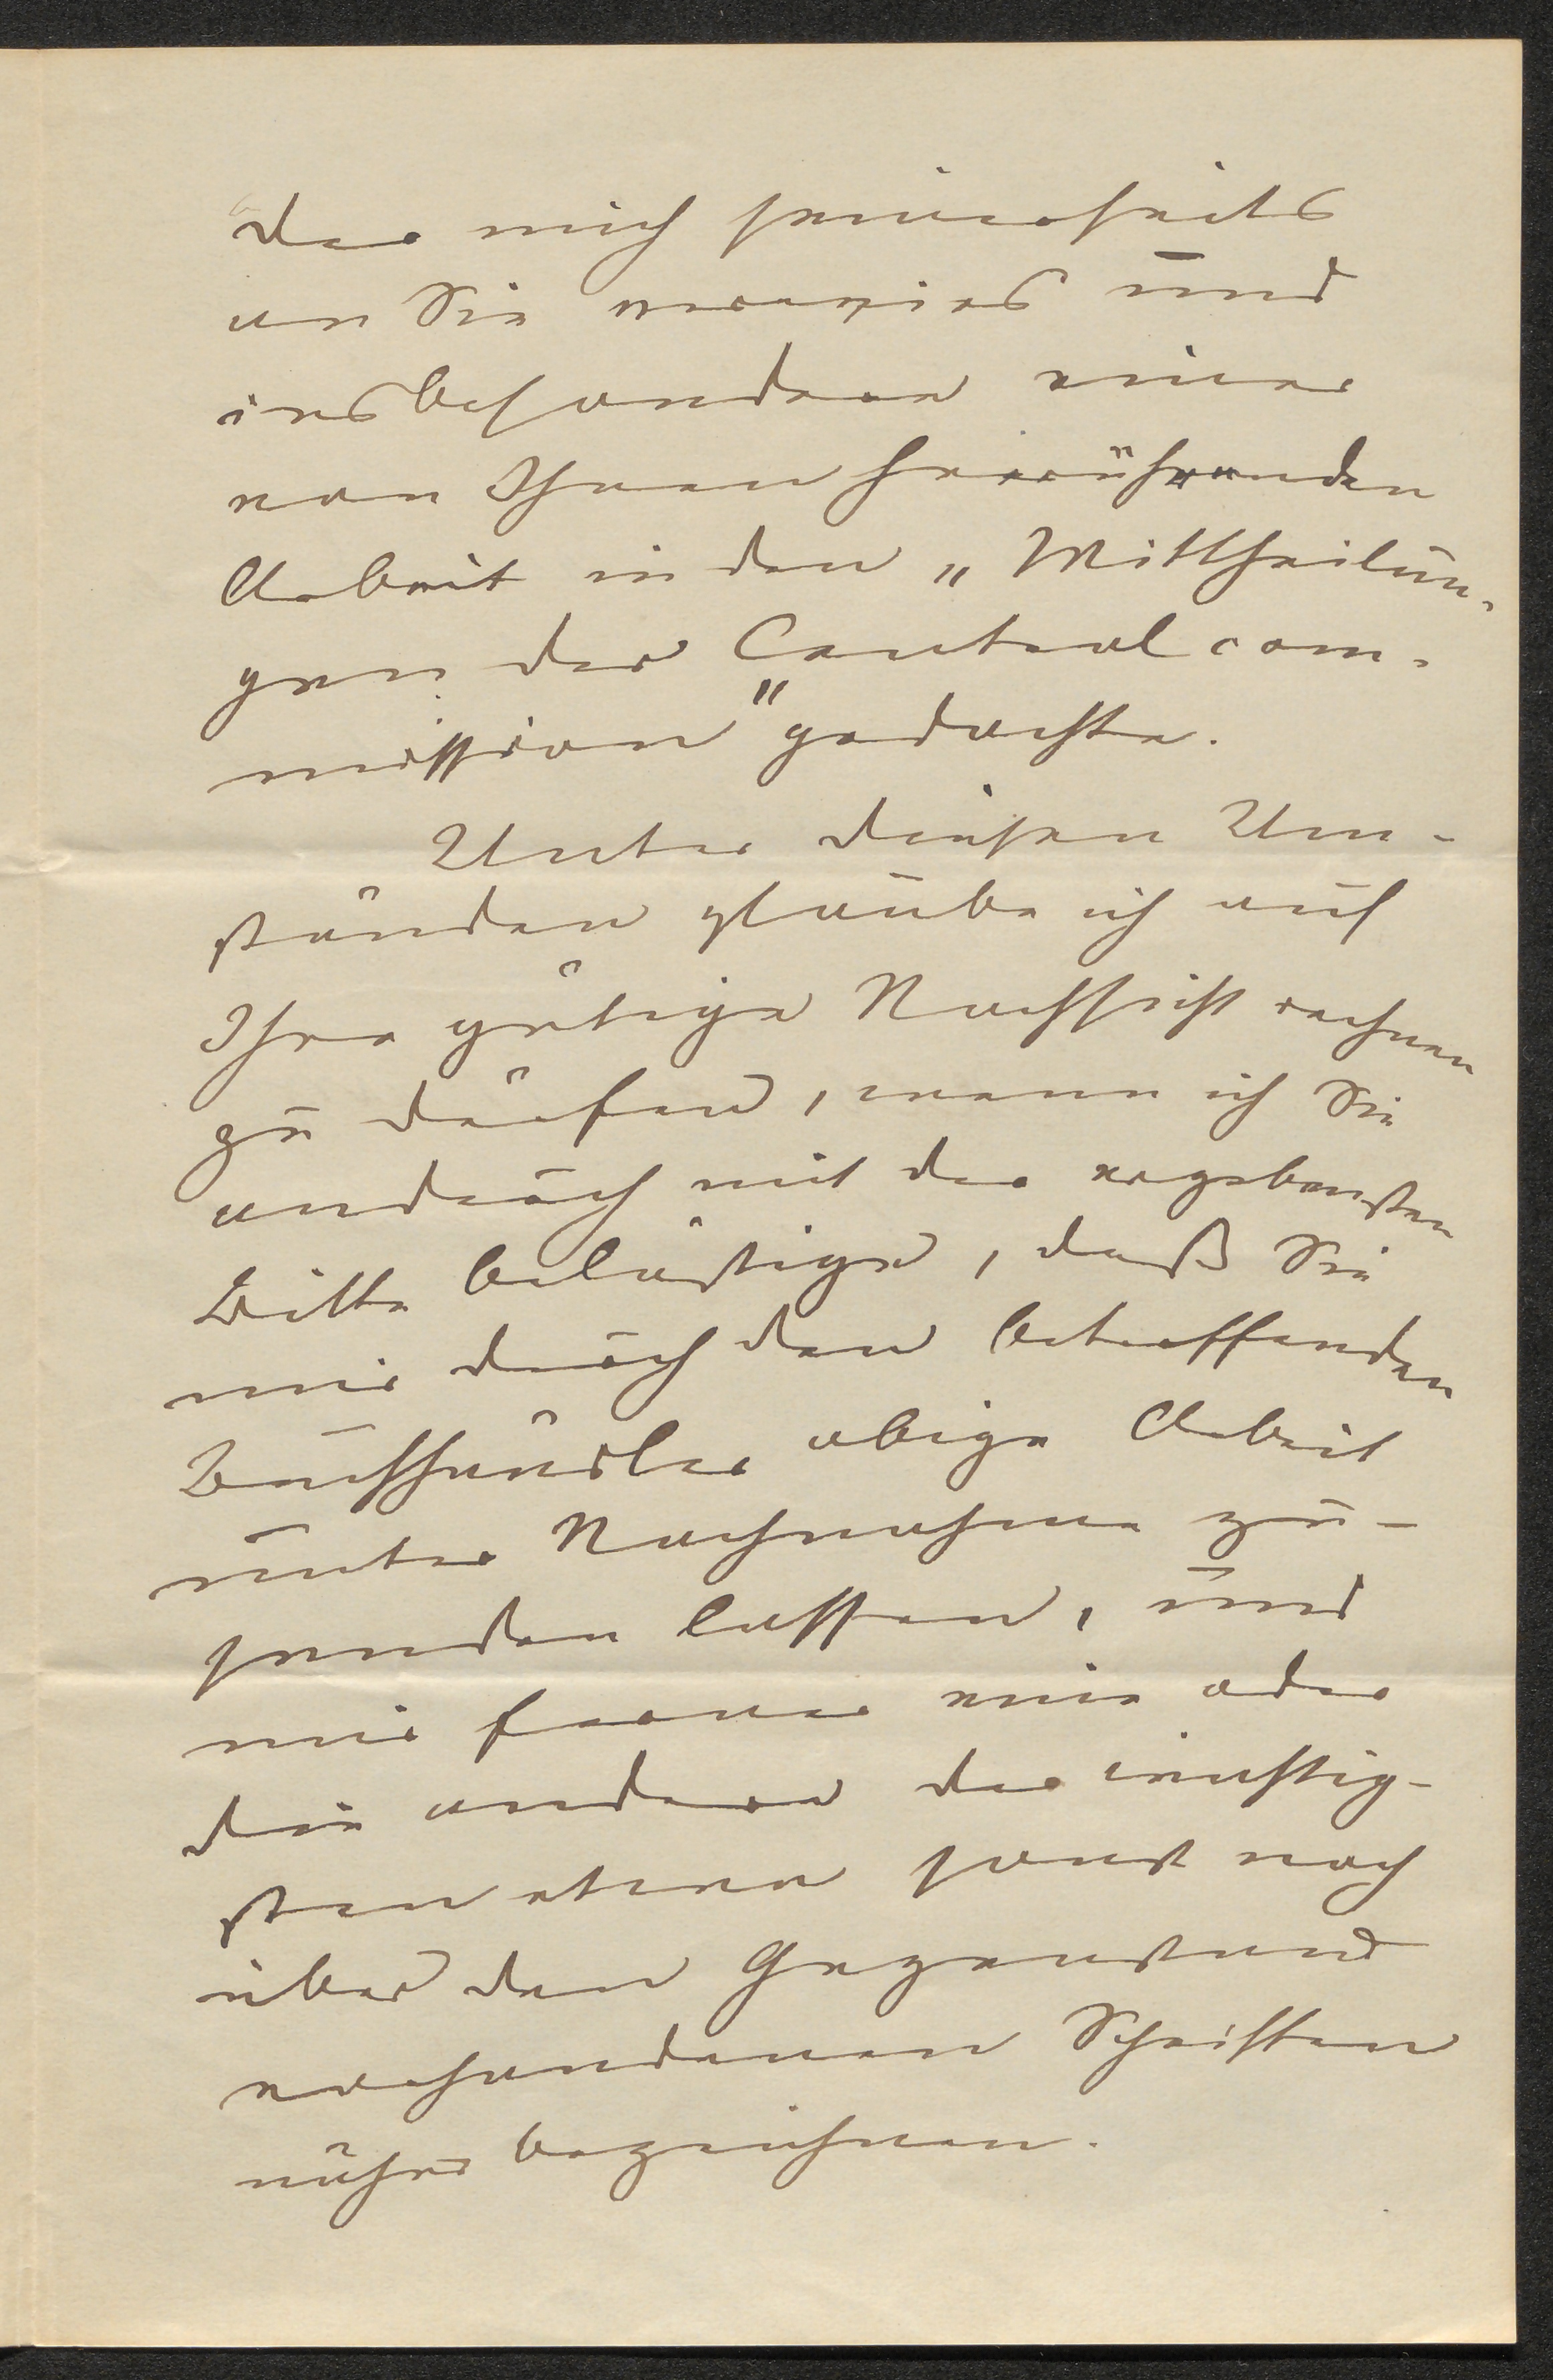 der mich seinerseits
an Sie verwies und
insbesondere einer
von Ihnen herrührenden
Arbeit in den „Mittheilun-
gen der Central com-
mission" gedachte.
Unter diesen Um-
ständen glaube ich auf
Ihre gütige Nachsicht rechnen
zu dürfen, wenn ich Sie
andurch mit der ergebensten
Bitte belästige, daß Sie
mir durch den betreffenden
Buchhändler obige Arbeit
unter Nachnahme zu-
senden lassen, und
mir ferner eine oder
die andere der wichtig-
sten etwa sonst noch
über den Gegenstand
vorhandenen Schriften
näher bezeichnen.